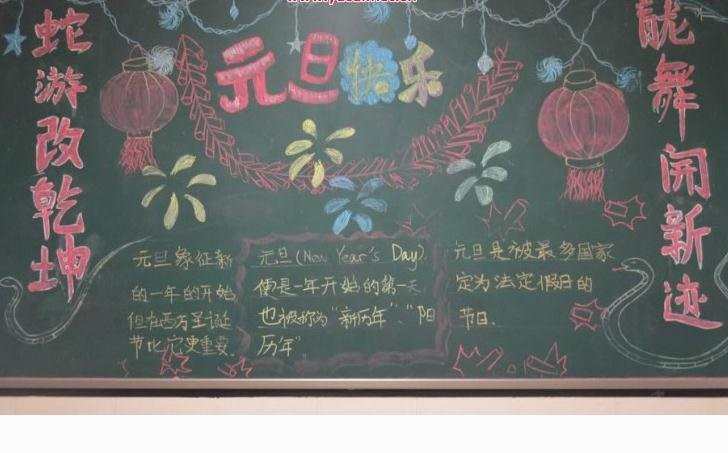 蛇游改乾坤
元旦快乐
舞开新迹
元旦象征新
的一年的开始
但在西方圣诞
节比它更重要
元旦(New Year's Day)
便是一年开始的第一天
也被称为"新历年"、"阳
历年"
元旦是被最多国家
定为法定假日的
节日.